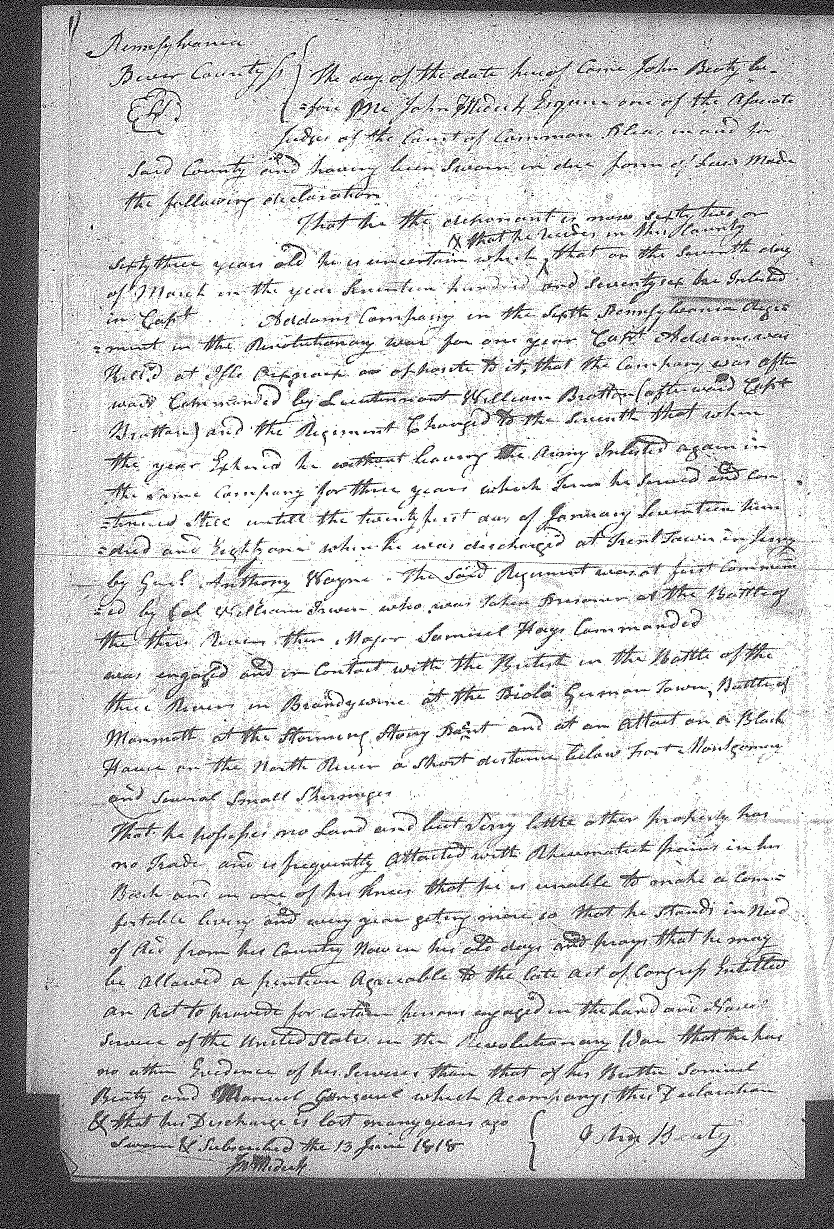 Pennsylvania
Bever County ss The day of the date hereof Came John Beaty be-
=fore Me John Esquire one of the Asociate
Judges of the Court of Common Pleas in and for
Said County and having been Sworn in due form of Law Made
the following declaration
That he the deponant is now sixty two or
& that he recides in this County
Sixty three years old he is uncertain which, that on the Seventh day
of March in the year Seventeen hundred and Seventy six he Inlisted
in Capt Addams Company in the Sixth Pennsylvania Regi=
=ment in the Revolutionary war for one year Capt Addams was
Kill'd at Isle or opposite to it, that the Company was after
ward Commanded by Lieutennant William Bratton (afterward Capt
Bratton) and the Regiment Changed to the Seventh that when
the year Expired he without leaving the Army Inlisted again in
the same Company for three years which Term he served and con
=tinued Still untill the twenty first day of January Seventeen hun
=dred and Eighty one when he was discharged at Trent Town in Jersey
by Genl Anthony Wayne. The Said Regiment was at first Command
=ed by Col William Irwin who was Taken Prisoner at the Battle of
the three Rivers then Major Samuel Hays Commanded
was engaged and in Contact with the British in the Battle of the
three Rivers in Brandywine at the German Town, Battle of
Monmoth at the Storming Stony Point and at an attact on a Block
House on the North River a Short distance below Fort Montgomery
and Several Small Skermiges
That he possesses no Land and but very little other property has
no Trade and is frequently attacted with Rheumatick pains in his
Back and in one of his Knees that he is unable to make a com=
fortable living and every year geting more so that he stands in Need
of Aid from his Country Now in his old days and prays that he may
be allowed a pention Agreeable to the late Act of Congress Entitled
an Act to provide for certain persons engaged in the Land and Naval
Service of the United States in the Revolutionary War that he has
no other Evidence of his Services than that of his Brother Samuel
Beaty and Manuel which Acompanys this Declaration
& that his Discharge is lost many years ago
Sworn & Subscribed the 13 June 1818
John Beaty